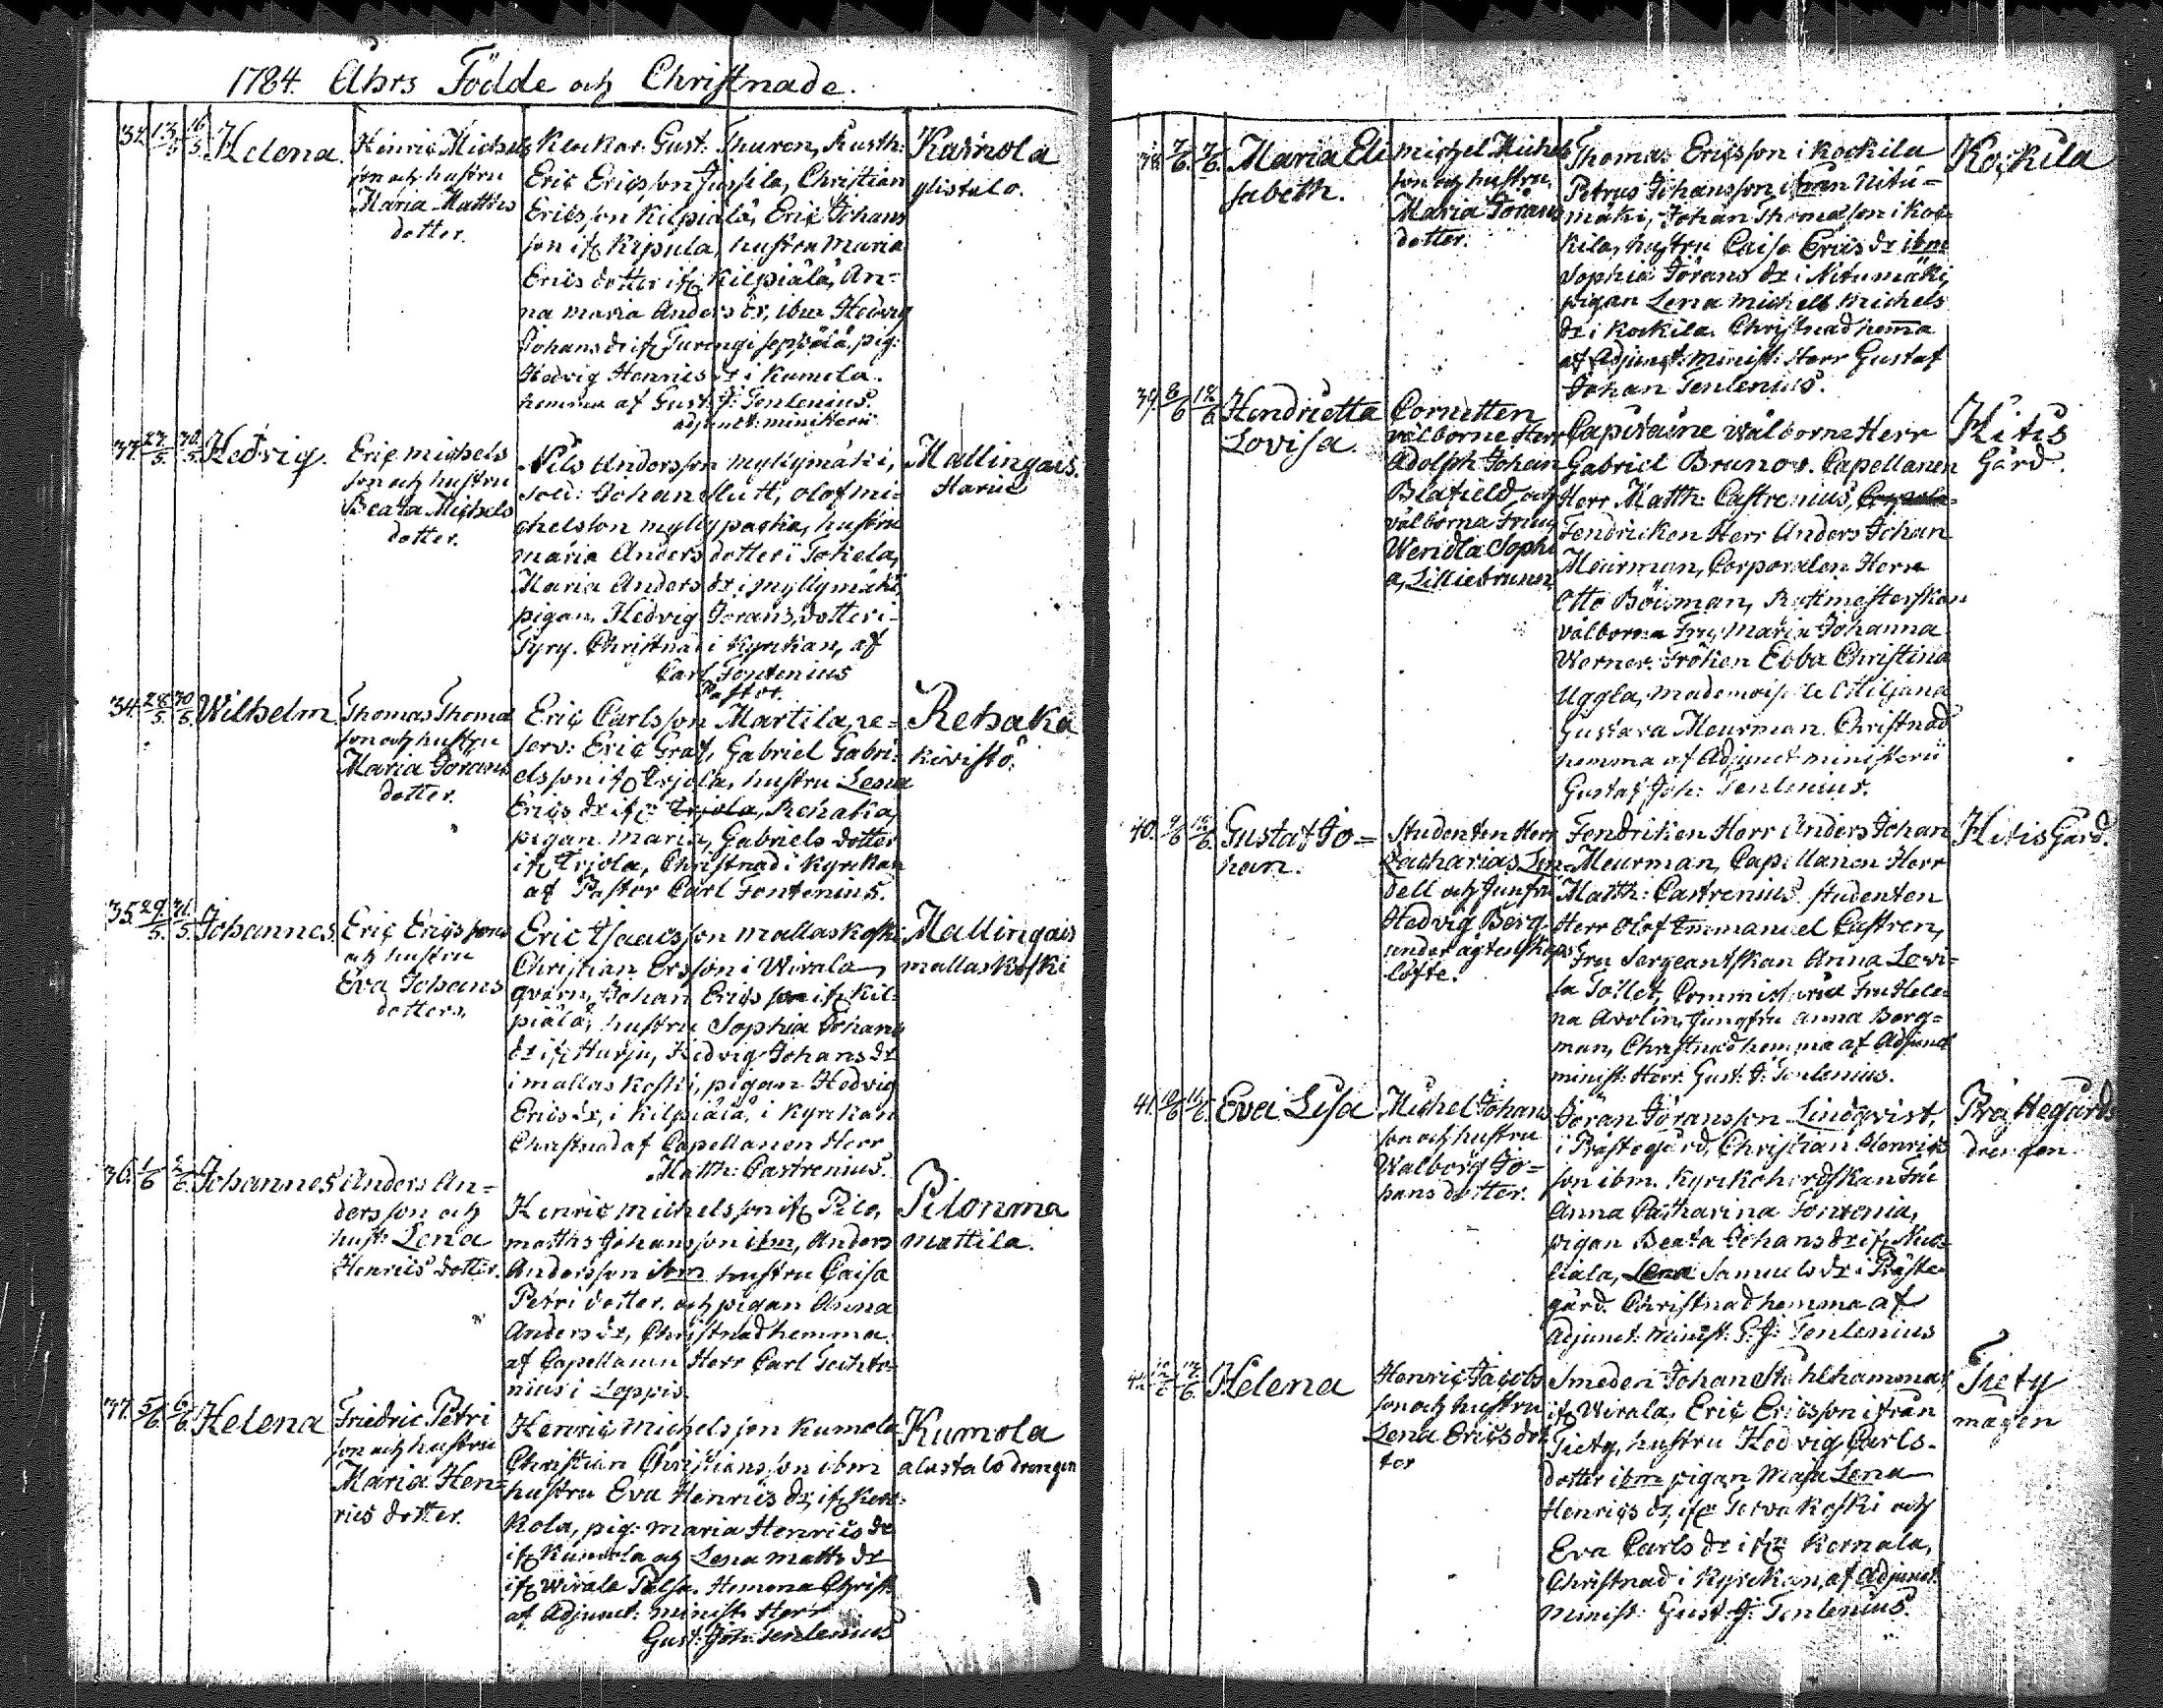 1784. Åhrs Födde och Christnade.
32. 13/5 16/5 Helena.
Henric Michels
son och hustru
Maria Matths
dotter.
Klockar. Gust: Thuren, Rusth:
Eric Ericsson Jussila, Christian
Ericsson Kilpiälä, Eric Johans
son ifr Ripula, hustru Maria
Erics dotter ifr Kilpiälä, An=
na Maria Anders dr, ibm Hedvig
Johans dr ifr Turengi seppälä, pig:
Hedvig Henrics dr i Kumola.
hemma af Gust: J: Tenlenius.
adjunct: ministerii
Kaimola
ylistalo.
33. 27/5 30/5 Hedvig.
Eric Michels
son och hustru
Beata Michels
dotter.
Nils Andersson Myllymäki,
sold: Johan Slutt, Olof Mi=
chelsson Myllypaskia, hustru
Maria Anders dotter i Tokela,
Maria Anders dr i Myllymäki
pigan, Hedvig Jörans, dotter i
Tyry. Christnad i Kyrckan, af
Carl Fontenius
Pastor.
Mallingais.
Harin
34. 28/5 30/5 Wilhelm
Thomas Thomæ
son och hustru
Maria Jörans
dotter.
Eric Carlsson Martila, re=
serv: Eric Graf, Gabriel Gabri=
elsson ifr Erjola, hustru Lena
Erics dr ifr Erjola, Rehaka,
pigan Maria, Gabriels dotter
ifr Erjola, Christnad i Kyrckan
af Pastor Carl Fontenius.
Rehaka
Kivistö.
35. 29/5 31/5 Johannes
Eric Ericsson
och hustru
Eva Johans
dotters.
Eric Isacsson Mallaskoski
Christian Ersson i Wirala
qvarn, Johan Ericsson ifr Kil=
piälä, hustru Sophia Johans
dr ifr Harju, Hedvig Johans dr
i Mallaskoski, pigan Hedvig
Erics dr, i Kilpiälä, i Kyrckan
Christnad af Capellanen Herr
Matth: Castrenius.
Mallingais
mallaskoski
36. 1/6 2/6 Johannes
Anders An=
dersson och
hust: Lena
Henrics dotter.
Henric Michelsson ifr Pilo,
Matths Johansson ibm, Anders
Andersson ibm hustru Caisa
Petri dotter. och pigan Anna
Anders dr, Christnad hemma
af Capellanen Herr Carl
nius i Loppis.
Pilonma
mattila.
37. 5/6 6/6 Helena
Friedric Petri
son och hustru
Maria Hen=
rics dotter.
Henric Michelsson Kumola
Christian Christiansson ibm
hustru Eva Henrics dr, ifr
Kola, pig: Maria Henrics dr
ifr Kumola och Lena Matts dr
ifr Wirala Hemma Christ:
af Adjunct: minist: Herr
Gust: Joh: Tenlenius
Kumola
alastalo drengen
38. 7/6 7/6 Maria Eli
sabeth.
Michel Michels
son och hustru
Maria Jörans
dotter.
Thomas Ericsson i Kockila
Petrus Johansson ifrån Nitu=
mäki, Johan Thomæsson i Koc=
kila, hustru Caisa Erics dr ibm
Sophia Jörans dr i Nitumäki,
pigan Lena Michels Michels
dr i Kockila. Christnad hemma
af Adjunct: minist: Herr Gustaf
Johan Tenlenius.
Kockila
39. 8/6 12/6 Hendrietta
Lovisa.
Cornetten
välborne Herr
Adolph Johan
Blåfield och
välborna Fru
Wendla Sophi
a, Lilliebrunn
Capitaine Wälborne Herr
Gabriel Brunov. Capellanen
Herr Matth: Castrenius,
Fendricken Herr Anders Johan
Meurman, Corporalen Herr
Otto Böisman, Rytmesterskan
välborna Fru Maria Johanna
Werner. Fröken Ebba Christina
Uggla, mademoiselle Ottiljana
Gustava Meurman. Christnad
hemma af Adjunct ministerii
Gustaf Joh: Tenlenius.
Hitis
Gård.
40. 9/6 12/6 Gustaf Jo=
han.
Studenten Herr
Zacharias Lin=
dell och Junfru
Hedvig Berg
under ägtenskaps
löfte.
Fendriken Herr Anders Johan
Meurman, Capellanen Herr
Matth: Castrenius studenten
Herr Olof Emmanuel Castren,
Fru Sergeantskan Anna Lovi=
sa Tollet, Fru Hele=
na Avolin, Jungfru Anna Berg=
man, Christnad hemma af Adjunct
minist: Herr Gust: J: Tenlenius.
Hitis Gård.
41. 10/6 11/6 Eva Lisa
Michel Johans
son och hustru
Walborg Jo=
hans dotter.
Jöran Jöransson Lindqvist,
i Prästegård, Christian Henrics
son ibm. Kyrckoherdskan Fru
Anna Catharina Fontenia,
pigan Beata Johans dr ifr
Lena Samuels dr i Präste
gård. Christnad hemma af
Adjunct: minist: G: J: Tenlenius
Prästegårds
drengen.
42. Helena
Henric Jacobs
son och hustru
Lena Erics dot
ter
Smeden Johan Stahlhammar
ifr Wirala, Eric Ericsson ifrån
Tiety, hustru Hedvig Carls
dotter ibm pigan Maja Lena
Henrics dr, ifr Tervakoski och
Eva Carls dr ifr Kernala,
Christnad i Kyrckan, af Adjunct:
Minist: Gust: J: Tenlenius.
Tiety
mågen